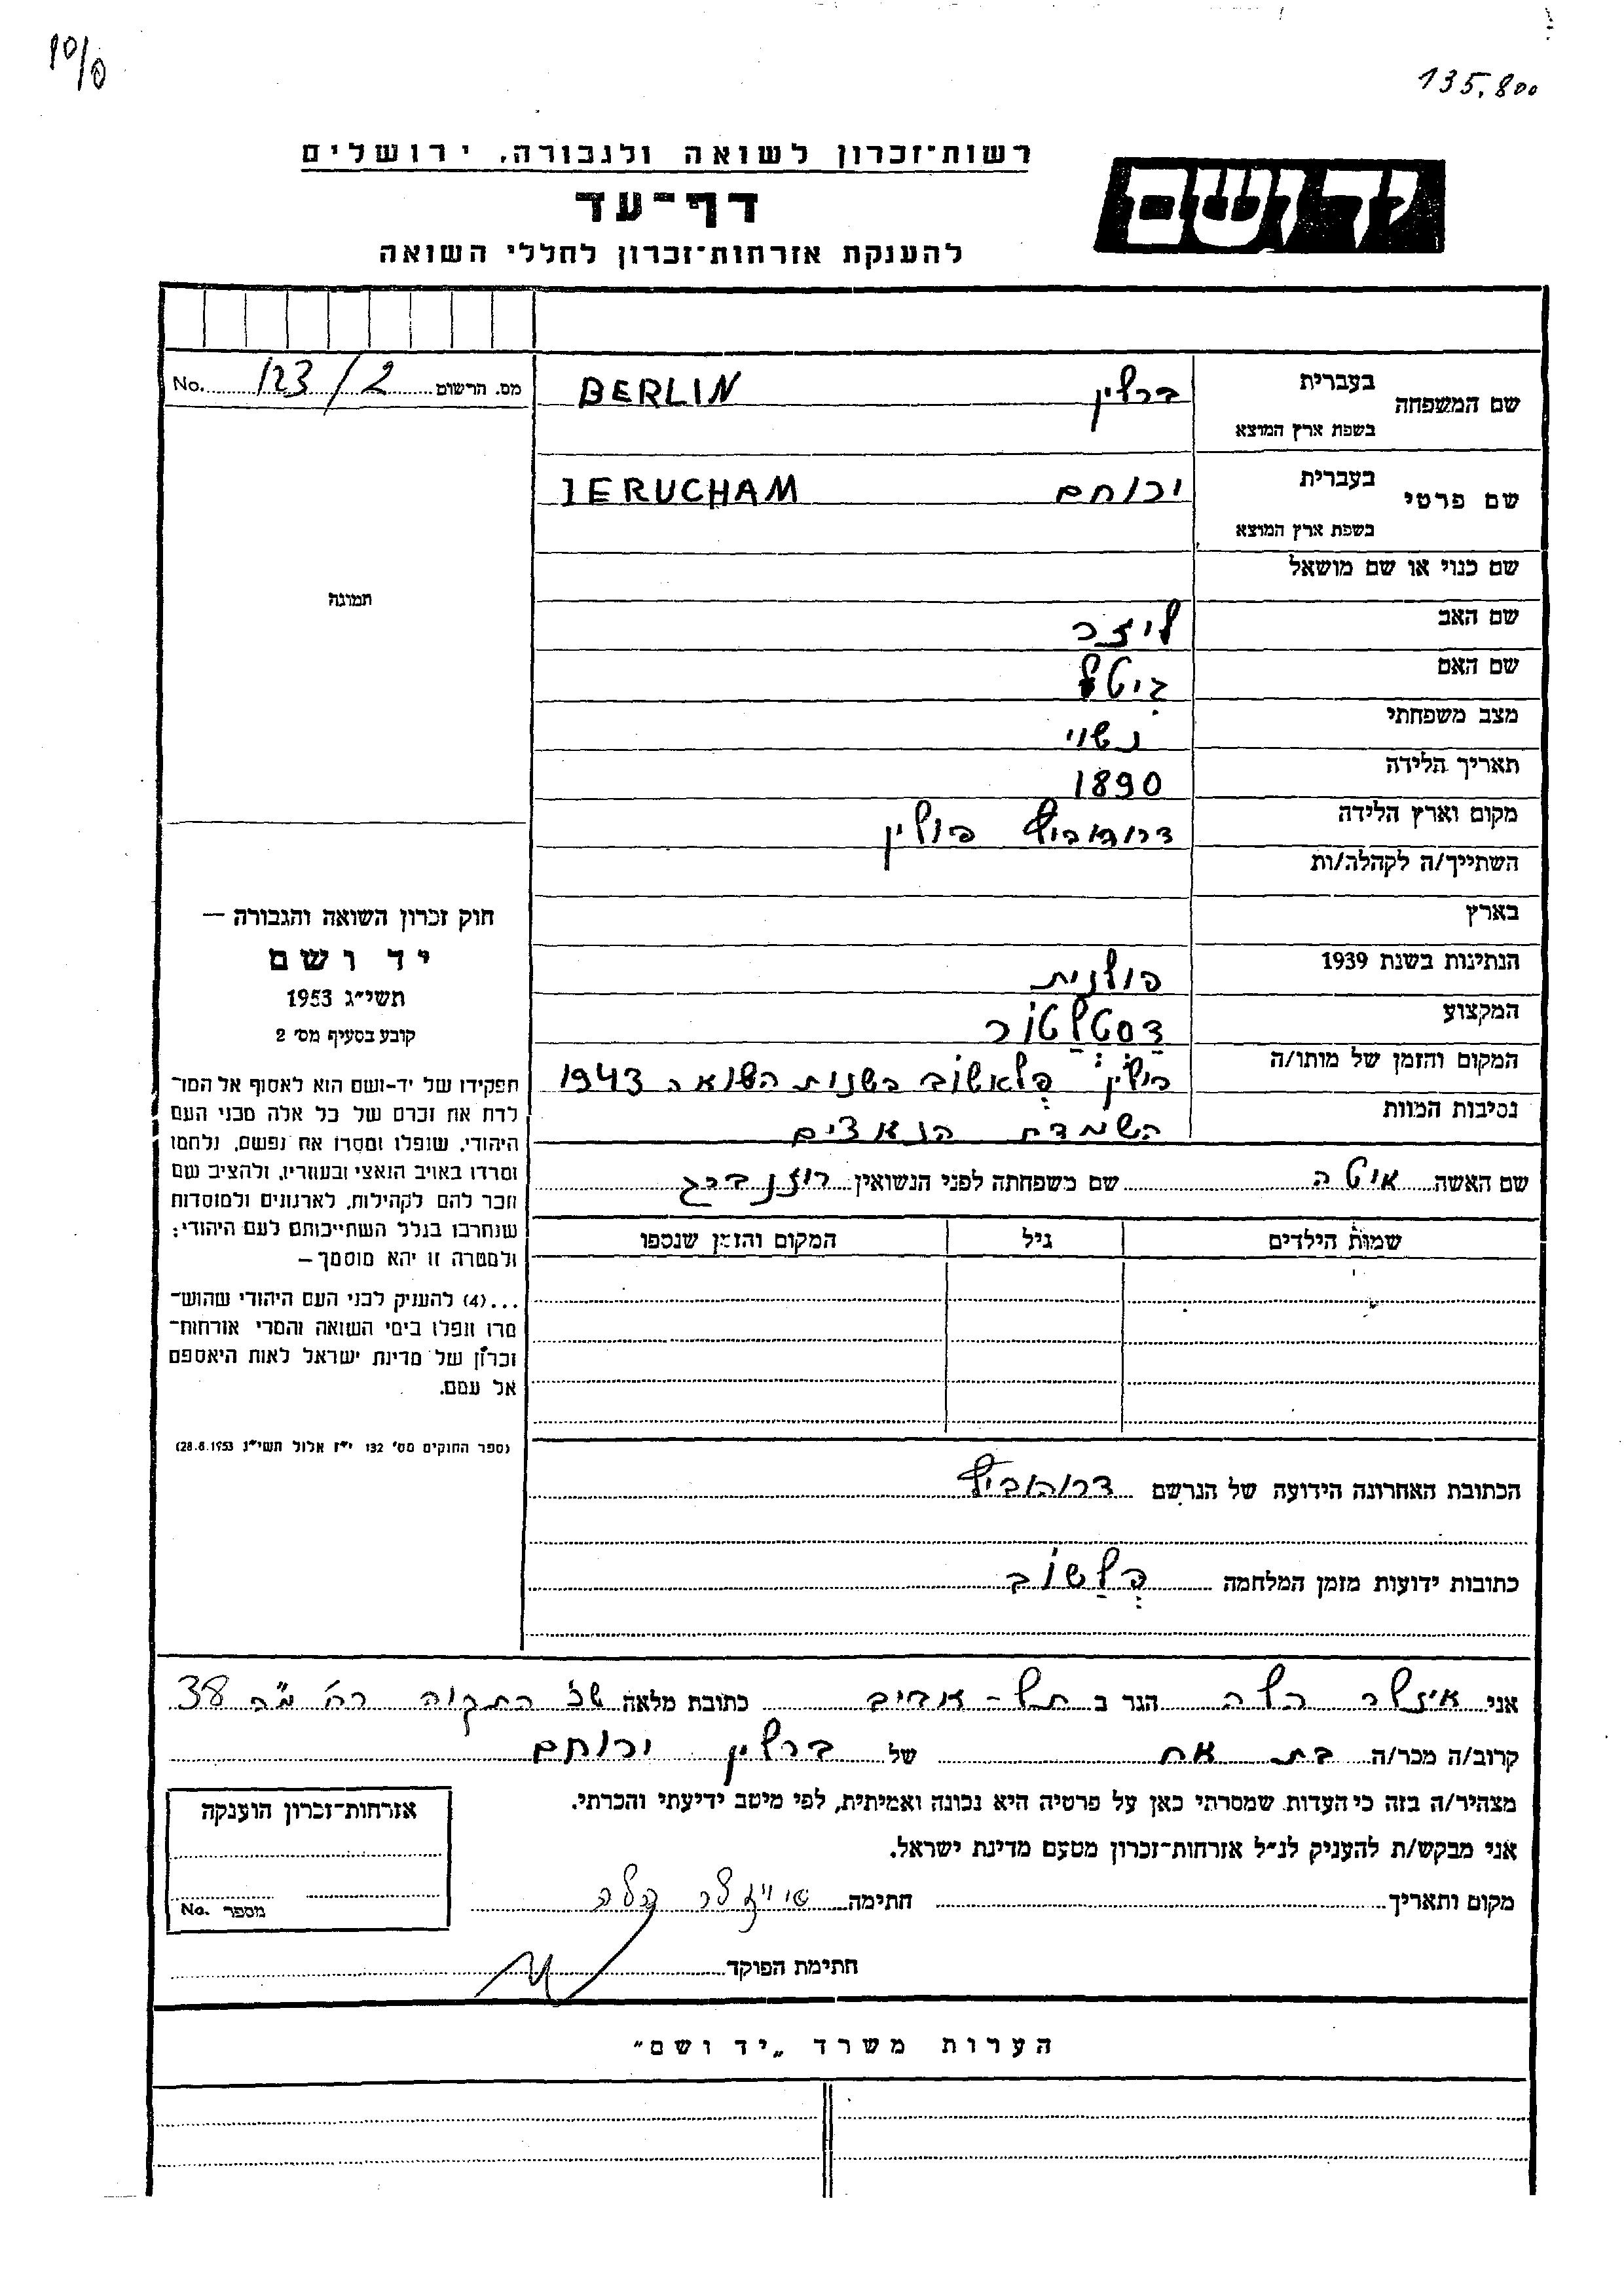 135.800
רשות־זכרון לשואה ולגבורה, ירושלים
ידושם
דף־עד
להענקת אזרחות־זכרון לחללי השואה
מס. הרשום 123/2 No.
שם המשפחה בעברית ברלין BERLIN
בשפת ארץ המוצא
שם פרטי בעברית ירוחם IERUCHAM
בשפת ארץ המוצא
שם כנוי או שם מושאל
תמונה
שם האב ליזר
שם האם גיטל
מצב משפחתי נשוי
תאריך הלידה 1890
מקום וארץ הלידה דרוהוביץ פולין
השתייך/ה לקהלה/ות
בארץ
הנתינות בשנת 1939 פולנית
המקצוע דסטלטור
המקום והזמן של מותו/ה פולין פלאשוב בשנות השואה 1943
נסיבות המוות השמדת הנאצים
שם האשה אוטה שם משפחתה לפני הנשואין רוזנברג
שמות הילדים גיל המקום והזמן שנספו
חוק זכרון השואה והגבורה —
יד ושם
תשי״ג 1953
קובע בסעיף מס׳ 2
תפקידו של יד־ושם הוא לאסוף אל המו־
לדת את זכרם של כל אלה מבני העם
היהודי, שנפלו ומסרו את נפשם, נלחמו
ומרדו באויב הנאצי ובעוזריו, ולהציב שם
וזכר להם לקהילות, לארגונים ולמוסדות
שנחרבו בגלל השתייכותם לעם היהודי;
ולמטרה זו יהא מוסמך —
...(4) להעניק לבני העם היהודי שהוש־
מדו ונפלו בימי השואה והמרי אזרחות־
זכרון של מדינת ישראל לאות היאספם
אל עמם.
(ספר החוקים מס׳ 132 י״ז אלול תשי״ג 28.8.1953)
הכתובת האחרונה הידועה של הנרשם דרוהוביץ
כתובות ידועות מזמן המלחמה פלשוב
אני איזלר הלה הגר ב תל-אביב כתובת מלאה שכ׳ התקוה רח׳ מ״ה 38
קרוב/ה מכר/ה בת אח של ברלין ירוחם
מצהיר/ה בזה כי העדות שמסרתי כאן על פרטיה היא נכונה ואמיתית, לפי מיטב ידיעתי והכרתי.
אני מבקש/ת להעניק לנ״ל אזרחות־זכרון מטעם מדינת ישראל.
מקום ותאריך חתימה אייזלר הלה
חתימת הפוקד
אזרחות־זכרון הוענקה
מספר No.
הערות משרד „יד ושם״